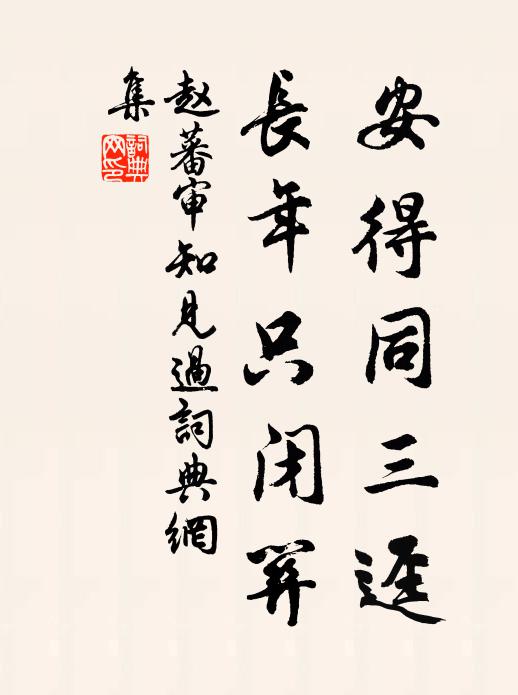 安得同三迳
長年只闭關
赵蕃审知見過詞典網
集
詞典网印